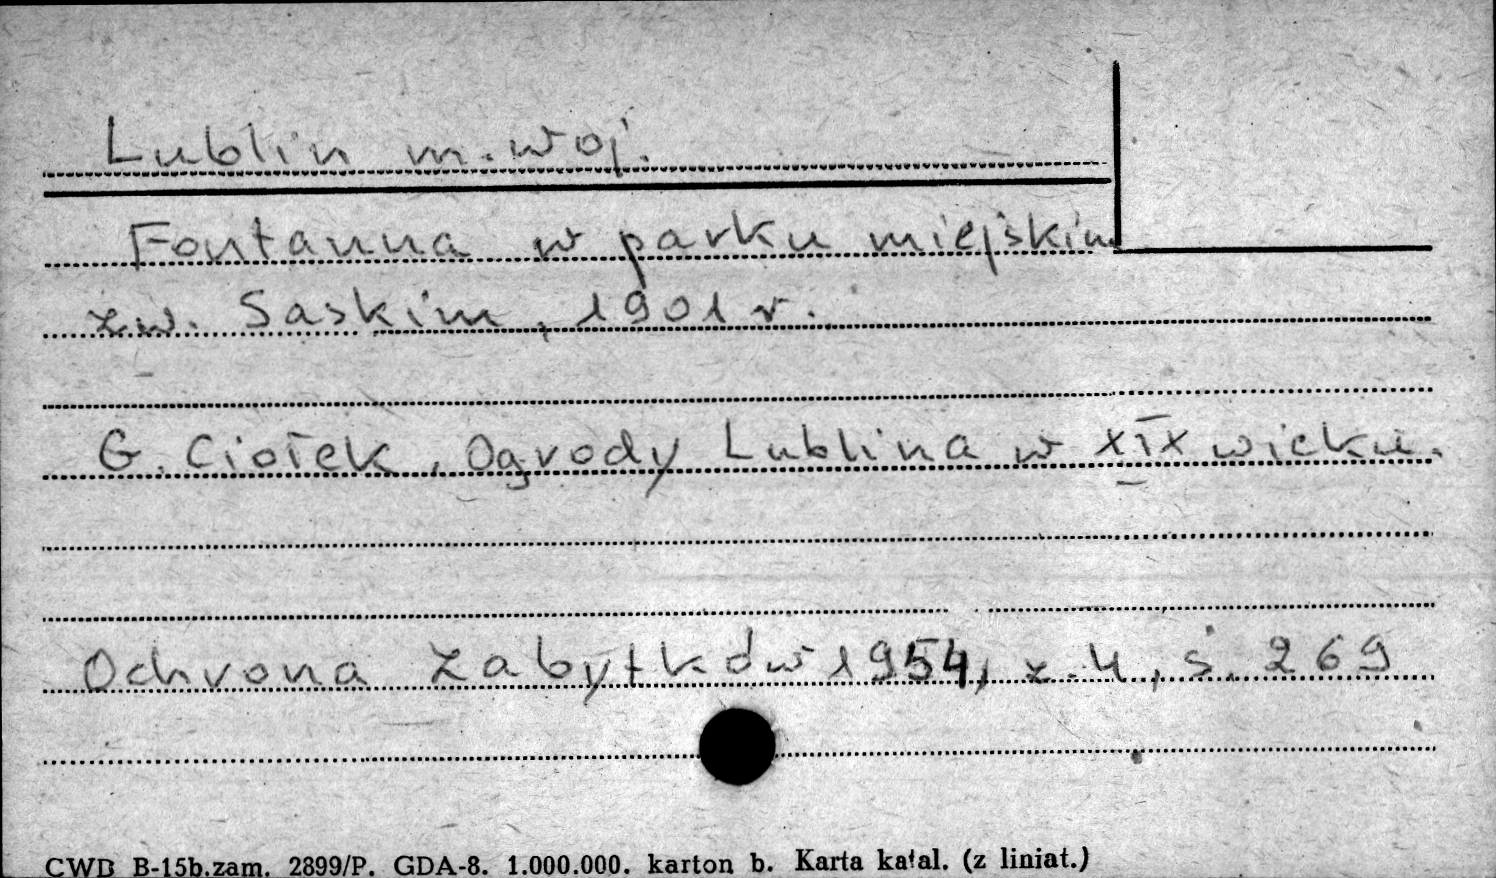 Lublin m. woj.
Fontanna w parku miejskim
zw. Saskim, 1901 r.
G. Ciołek, Ogrody Lublina w XIX wieku.
Ochrona Zabytków 1954, z. 4, s. 269
CWD B-15b.zam. 2899/P. GDA-8. 1.000.000. karton b. Karta katal. (z liniat.)